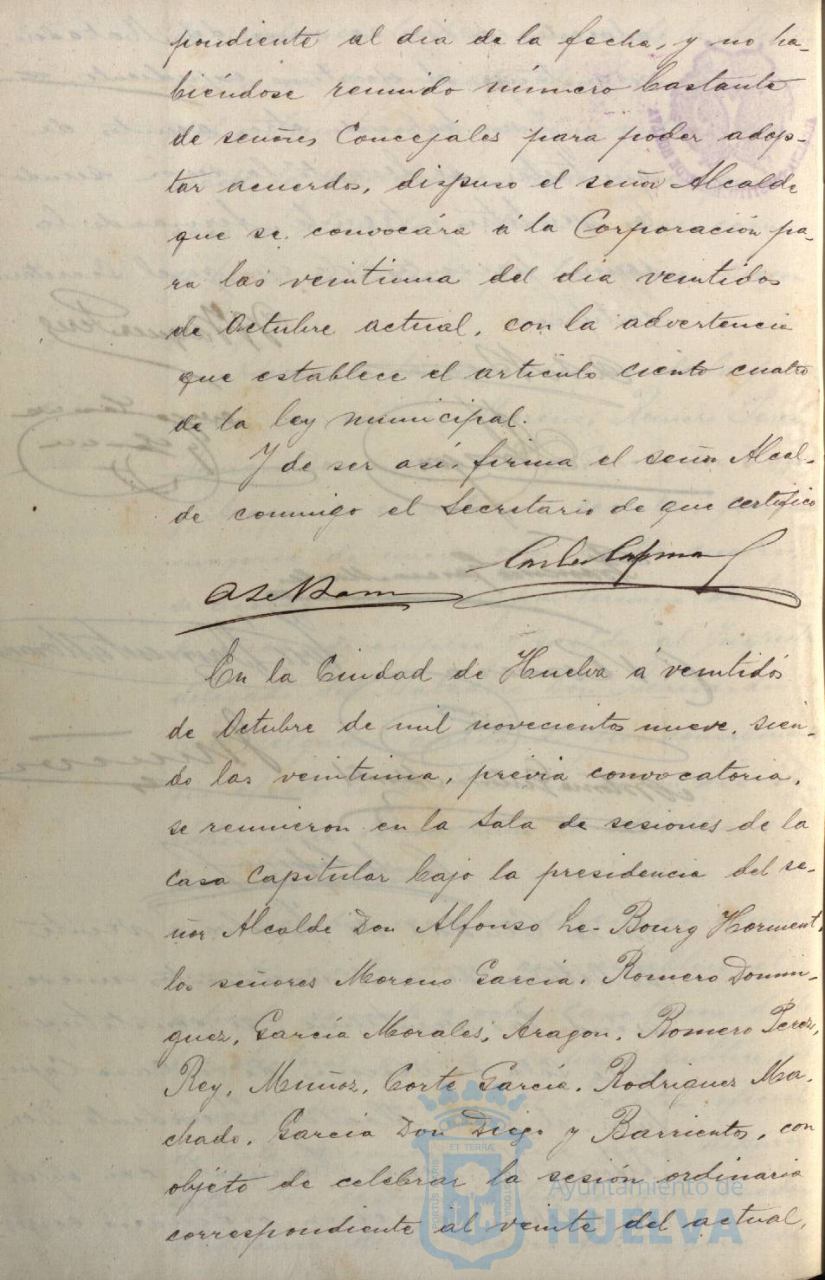 pondiente al dia de la fecha, y no ha-
biéndose reunido número bastante
de señores Concejales para poder adop-
tar acuerdos, dispuso el señor Alcalde
que se convocára á la Corporación pa-
ra las veintiuna del dia veintidos
de Octubre actual, con la advertencia
que establece el artículo ciento cuatro
de la ley municipal.
Y de ser así, firma el señor Alcal-
de conmigo el Secretario de que certifico
En la Ciudad de Huelva á veintidós
de Octubre de mil novecientos nueve, sien-
do las veintiuna, previa convocatoria,
se reunieron en la Sala de sesiones de la
Casa Capitular bajo la presidencia del se-
ñor Alcalde Don Alfonso Le-Bourg Horment,
los señores Moreno García, Romero Domin-
guez, García Morales, Aragon, Romero Perez,
Rey, Muñoz, Corte García, Rodriguez Ma-
chado, García Don Diego y Barrientos, con
objéto de celebrar la sesión ordinaria
correspondiente al veinte del actual,
Ayuntamiento de
HUELVA